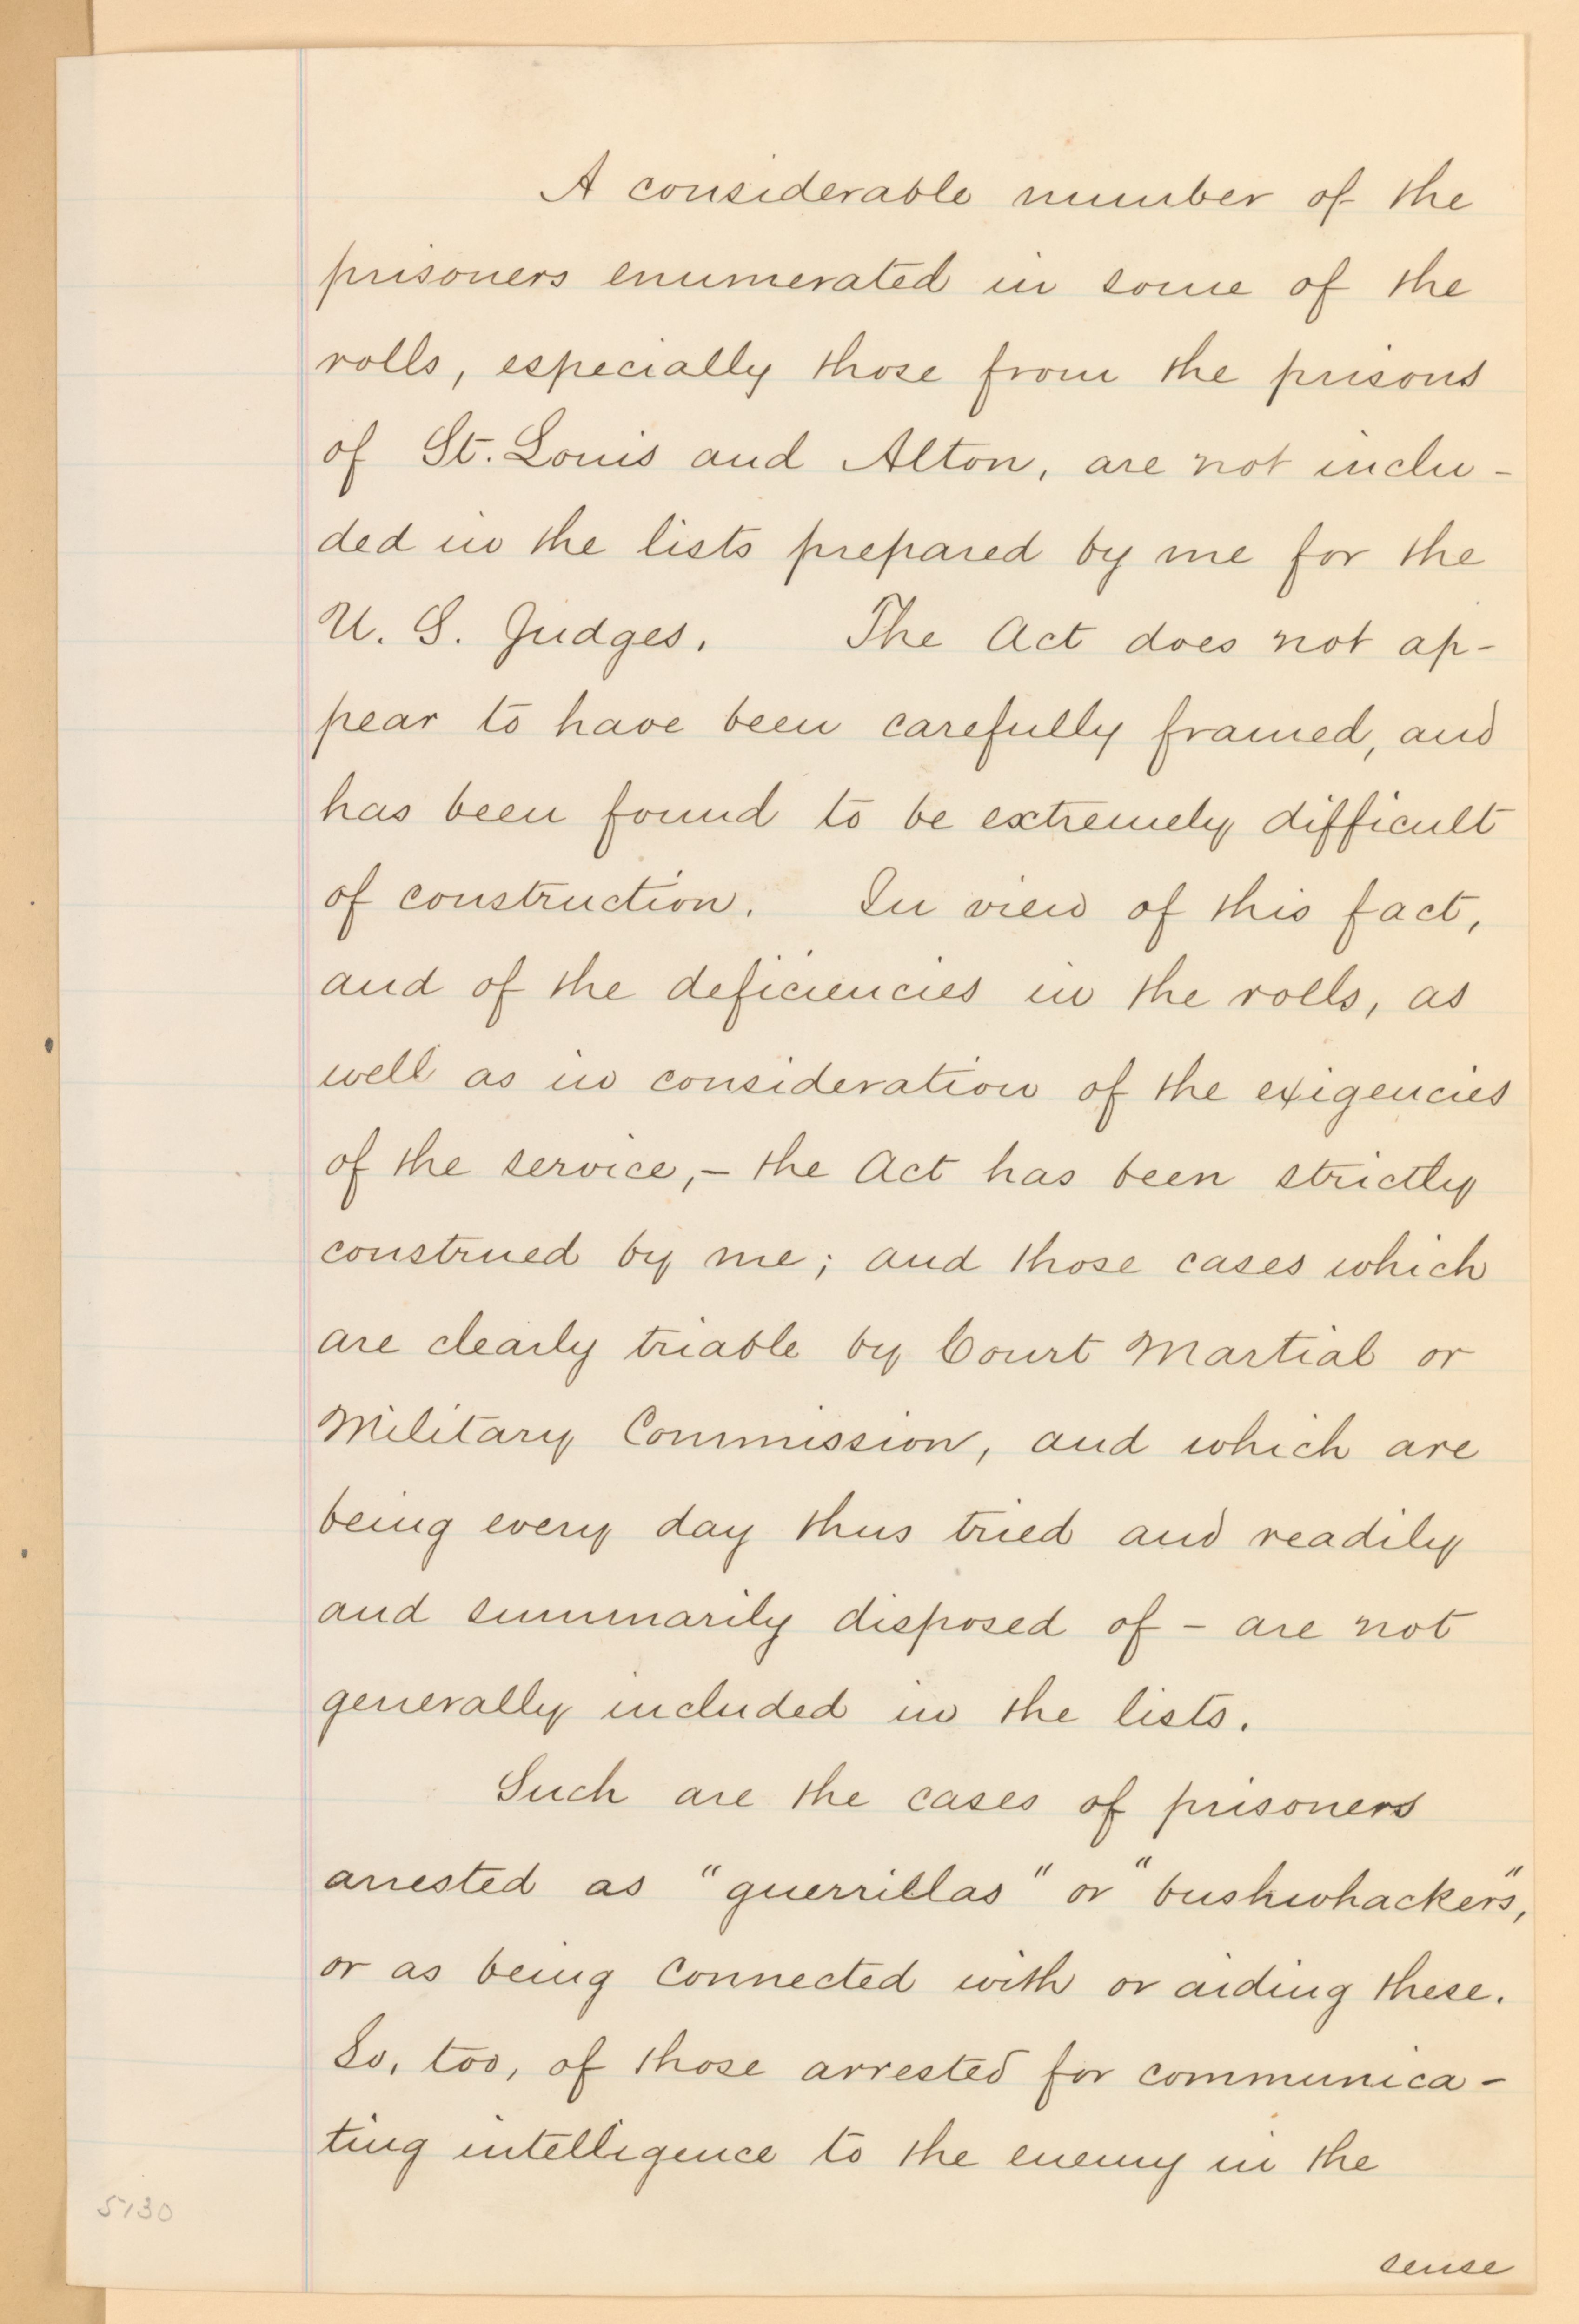 A considerable number of the
prisoners enumerated in some of the
rolls, especially those from the prisons
of St. Louis and Alton, are not inclu-
ded in the lists prepared by me for the
U. S. Judges. The Act does not ap-
pear to have been carefully framed, and
has been found to be extremely difficult
of construction. In view of this fact,
and of the deficiencies in the rolls, as
well as in consideration of the exigencies
of the service,- the Act has been strictly
construed by me; and those cases which
are clearly triable by Court Martial or
Military Commission, and which are
being every day thus tried and readily
and summarily disposed of - are not
generally included in the lists.
Such are the cases of prisoners
arrested as "guerrillas" or "bushwhackers",
or as being connected with or aiding these.
So, too, of those arrested for communica-
ting intelligence to the enemy in the
5130
sense